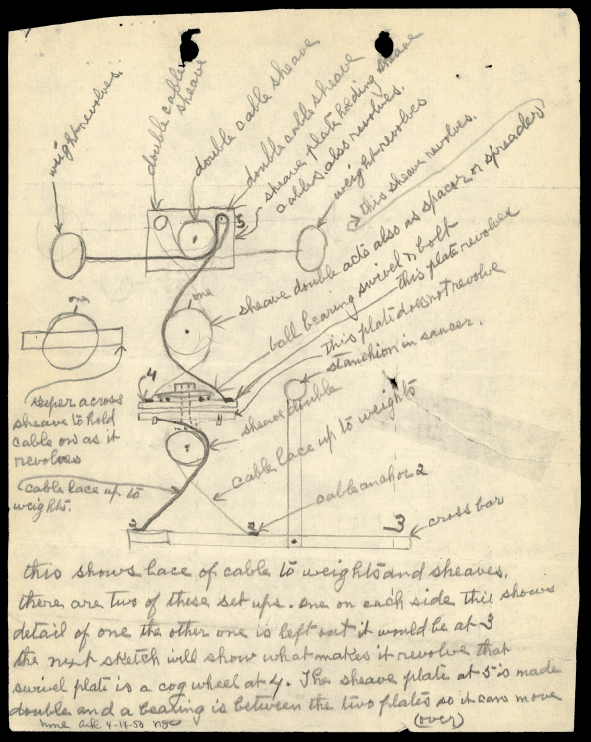 weight revolves.
double cable
sheave
double cable sheave
double cable sheave
sheave plate holding sheave
cables, also revolves.
weight revolves
this sheave revolves.
sheave double acts also as spacer or spreader
ball bearing swivel & bolt
this plate revolves
this plate does not revolve
stanchion in saucer.
5
one
one
4
keeper across
sheave to hold
cable on as it
revolves
sheave double
cable lace up to weights
cable lace up to
weights.
cable anchor 2
2
3
cross bar
this shows lace of cable to weights and sheaves.
there are two of these set ups. one on each side this shows
detail of one the other one is left out it would be at 3
the next sketch will show what makes it revolve that
swivel plate is a cog wheel at 4. The sheave plate at 5 is made
double and a bearing is between the two plates so it can move
(over)
Ark 4-14-50